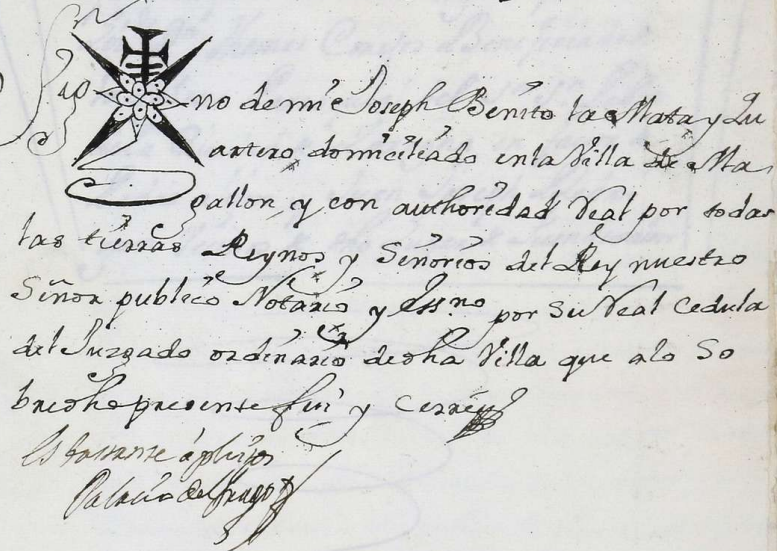 Sig no de mi Joseph Benito la Mata y Qu
artero, domiciliado en la Villa de Ma
gallon, y con authoridad Real por todas
las tierras Reynos y Señorios del Rey nuestro
Señor publico Notario y Ess.no por Su Real Cedula
del Juzgado ordinario de dha Villa que a lo So
bredho presente fui y cerre